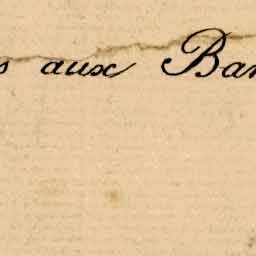 s aux Bar